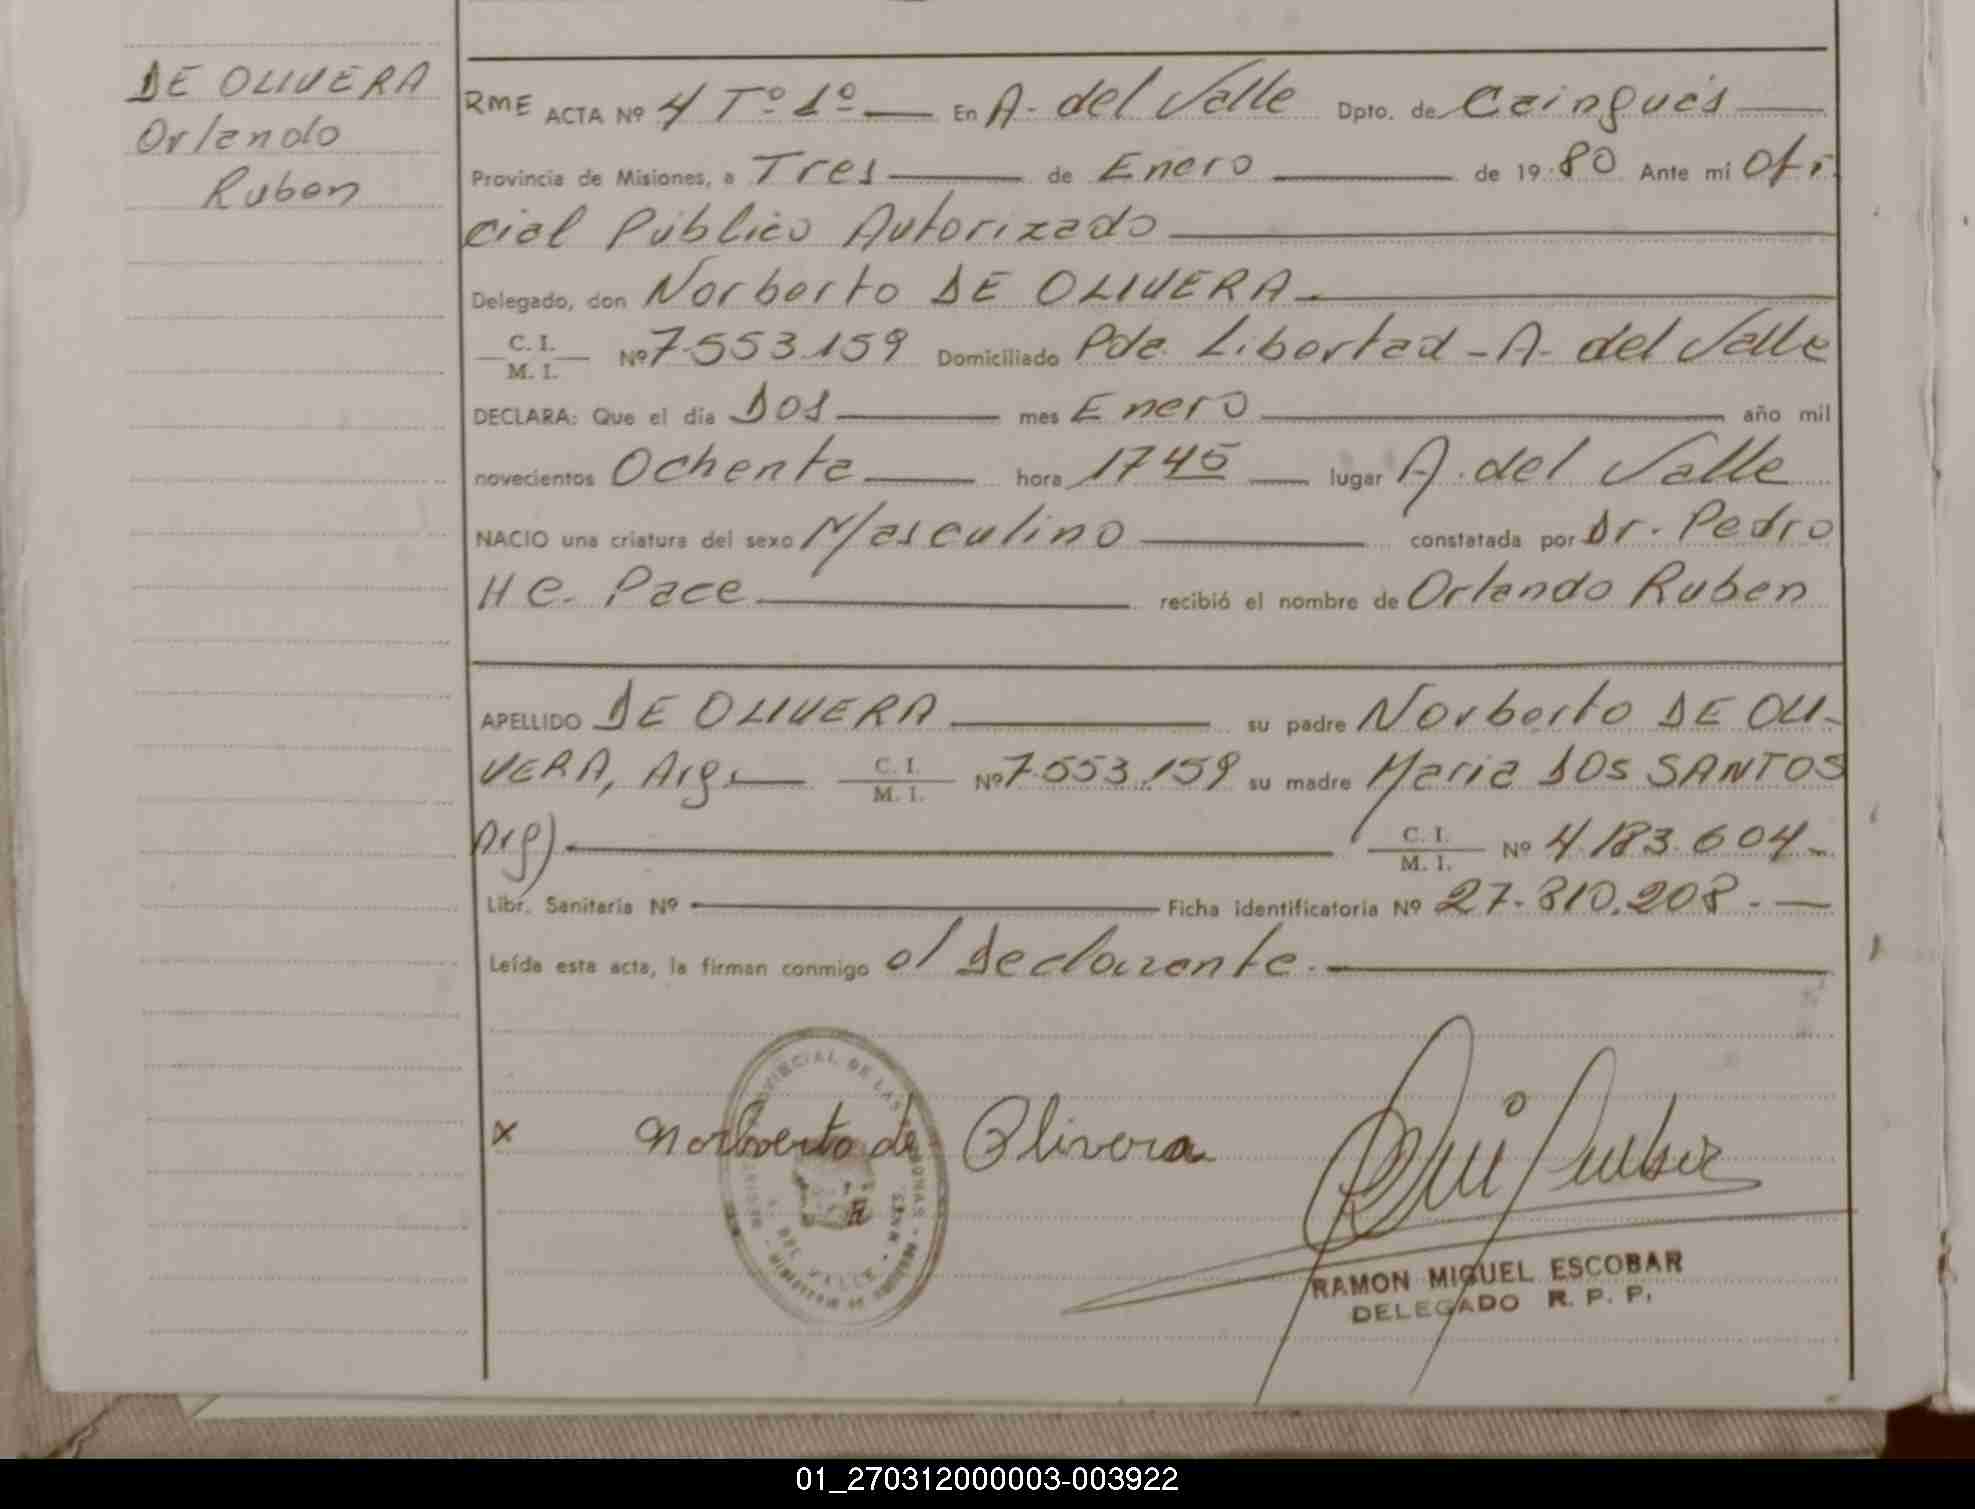 DE OLIVERA
Orlando
Ruben
RME ACTA Nº 4 Tº 1º En A. del Valle Dpto. de Cainguás
Provincia de Misiones, a Tres de Enero de 1980 Ante mi Ofi
cial Público Autorizado
Delegado, don Norberto DE OLIVERA
C. I.
M. I. Nº 7.553.159 Domiciliado Pda. Libertad - A. del Valle
DECLARA: Que el día Dos mes Enero año mil
novecientos Ochenta hora 17 45 lugar A. del Valle
NACIO una criatura del sexo Masculino constatada por Dr. Pedro
H C. Pace recibió el nombre de Orlando Ruben
APELLIDO DE OLIVERA su padre Norberto DE OLI-
VERA, Arg. C. I. M. I. Nº 7.553.159 su madre Maria DOS SANTOS
Arg) C. I. M. I. Nº 4.183.604-
Libr. Sanitaria Nº Ficha identificatoria Nº 27.810.208.-
Leída esta acta, la firman conmigo el Declarante.
x Norberto de Olivera
PROVINCIAL DE LAS PERSONAS
DEL VALLE
RAMON MIGUEL ESCOBAR
DELEGADO R. P. P.
01_270312000003-003922